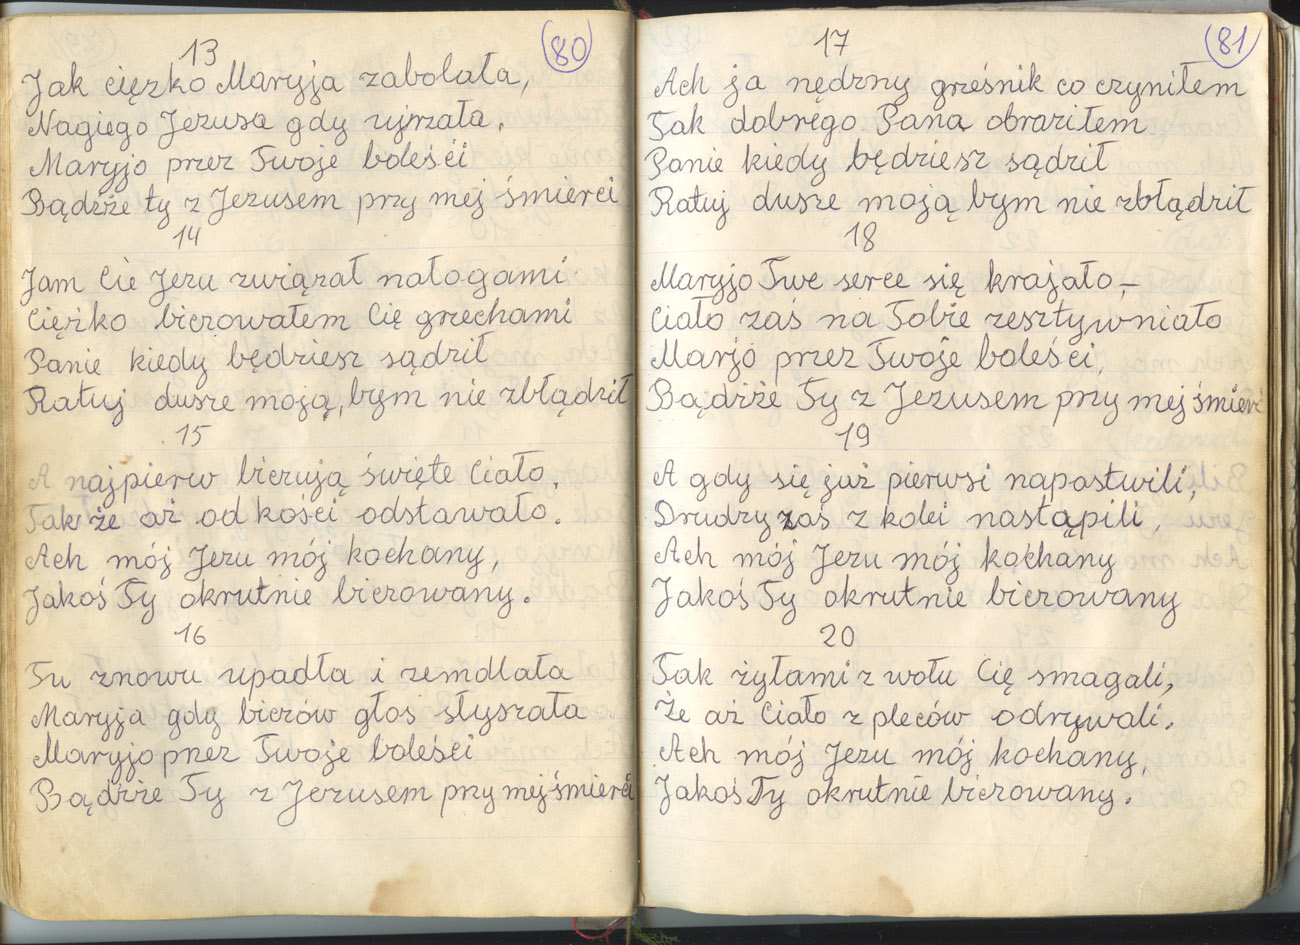 80
13
Jak ciężko Maryja zabolała,
Nagiego Jezusa gdy ujrzała.
Maryjo przez Twoje boleści
Bądźże ty z Jezusem przy mej śmierci
14
Jam Cie Jezu związał nałogami
Ciężko biczowałem Cię grzechami
Panie kiedy będziesz sądził
Ratuj dusze moją, bym nie zbłądził
15
A najpierw biczują święte Ciało,
Tak że aż od kości odstawało.
Ach mój Jezu mój kochany,
Jakoś Ty okrutnie biczowany.
16
Tu znowu upadła i zemdlała
Maryja gdy biczów głos słyszała
Maryjo przez Twoje boleści
Bądźże Ty z Jezusem przy mej śmierci
81
17
Ach ja nędzny grześnik co czyniłem
Tak dobrego Pana obraziłem
Panie kiedy będziesz sądził
Ratuj dusze moją bym nie zbłądził
18
Maryjo Twe serce się krajało,–
Ciało zaś na Tobie zesztywniało
Marjo przez Twoje boleści,
Bądźże Ty z Jezusem przy mej śmierci
19
A gdy się już pierwsi napastwili,
Drudzy zaś z kolei nastąpili,
Ach mój Jezu mój kochany
Jakoś Ty okrutnie biczowany
20
Tak żyłami z wołu Cię smagali,
Że aż Ciało z pleców odrywali.
Ach mój Jezu mój kochany,
Jakoś Ty okrutnie biczowany.